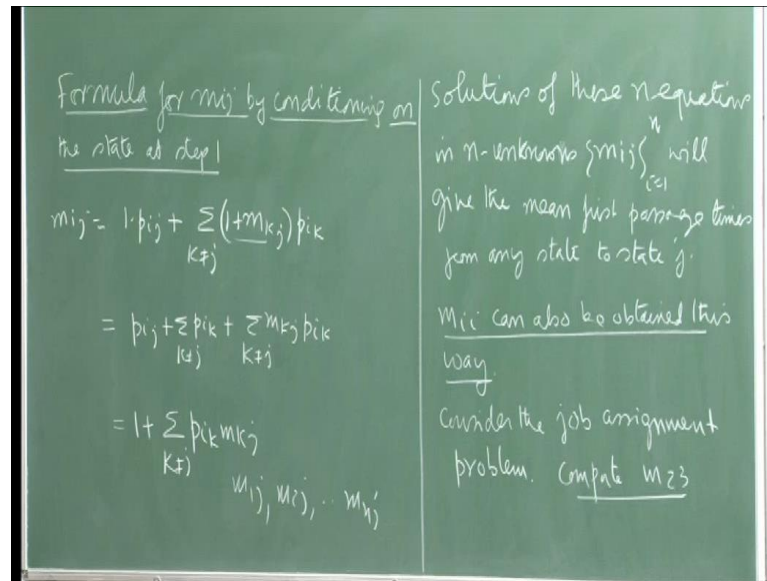 Formula for mij by conditioning on
the state at step 1
mij = 1·pij + Σ(1+mkj)pik
k≠j
= pij + Σpik + Σmkjpik
k≠j k≠j
= 1 + Σ pik mkj
k≠j
m1j, m2j, .. mnj
Solutions of these n equations
in n-unknowns {mij}ⁿ will
i=1
give the mean first passage times
from any state to state j.
mii can also be obtained this
way.
Consider the job assignment
problem. Compute m23